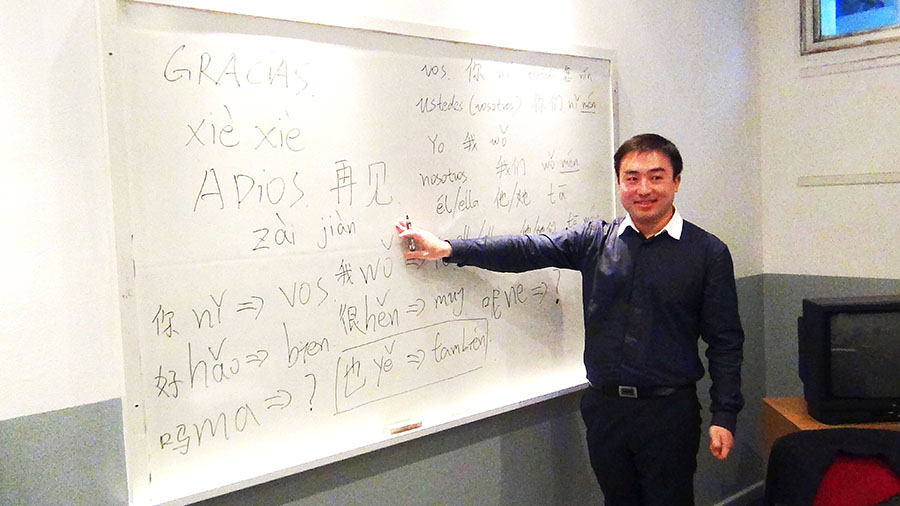 GRACIAS.
xiè xiè
ADIOS 再见
zài jiàn
vos. 你 您 nín
ustedes (vosotros) 你们 nǐ mén
Yo 我 wǒ
nosotros. 我们 wǒ mén
él/ella 他/她 tā
我 wǒ ⇒
你 nǐ ⇒ vos. 很 hěn ⇒ muy 呢 ne ⇒ ?
好 hǎo ⇒ bien 也 yě ⇒ también
吗 ma ⇒ ?